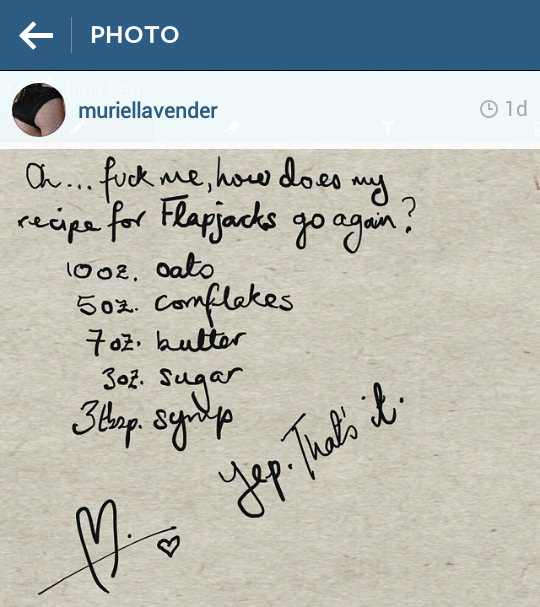 PHOTO
muriellavender
1d
Oh... fuck me, how does my
recipe for Flapjacks go again?
10oz. oats
5oz. cornflakes
7oz. butter
3oz. sugar
3tbsp. syrup
Yep. That's it.
M.